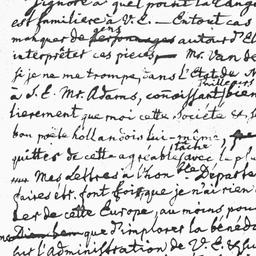 ignore à quel point la langu
est familière à V. E. — En tout cas
manquer de gens autour d'El
interpréter ces pieces, — Mr. Van de
Si je ne me trompe, dans l'Etat du N
à S. E. Mr. Adams, connaissant bien
lierement que moi cette Société et s
bon poete hollandois lui-même,
quitter de cette agréable tâche avec le plu
Mes Lettres à l'hon. ble Departe
faires etr. font foi, que je n'ai rien
der de cette Europe, au moins pou
que d'implorer la bénéd
sur l'Administration de V. E. & su